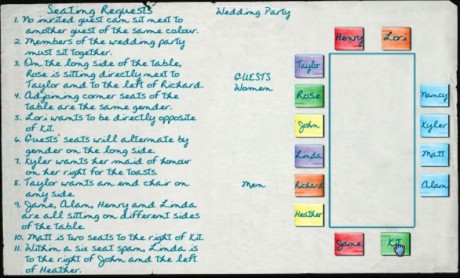 Seating Requests
1. No invited guest can sit next to
another guest of the same colour.
2. Members of the wedding party
must sit together.
3. On the long side of the table,
Rose is sitting directly next to
Taylor and to the left of Richard.
4. Adjoining corner seats of the
table are the same gender.
5. Lori wants to be directly opposite
of Kit.
6. Guests' seats will alternate by
gender on the long side.
7. Kyler wants her maid of honour
on her right for the toasts.
8. Taylor wants an end chair on
any side.
9. Jaime, Alam, Henry and Linda
are all sitting on different sides
of the table.
10. Matt is two seats to the right of Kit.
11. Within a six seat span, Linda is
to the right of John and the left
of Heather.
Wedding Party
Henry
Lori
Taylor
GUESTS
Women
Rose
Nancy
John
Kyler
Linda
Matt
Men
Richard
Alam
Heather
Jaime
Kit